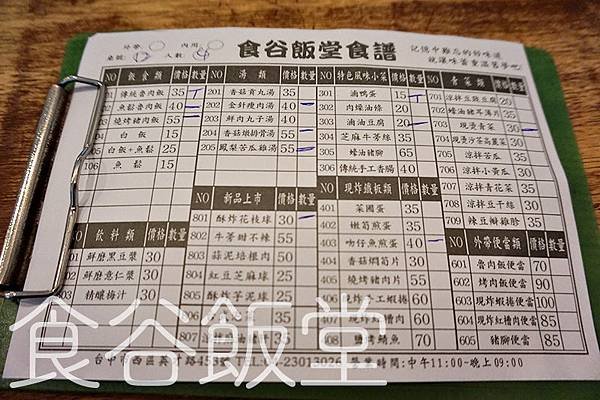 食谷飯堂食譜
外帶 內用
桌號 人數
記憶中難忘的好味道
就讓味蕾重溫舊夢吧
NO 飯食類 價格 數量
傳統魯肉飯 35
魚鬆魯肉飯 40
燒烤豬肉飯 55
白飯 15
105 白飯+魚鬆 25
106 魚鬆 15
NO 飲料類 價格 數量
鮮磨黑豆漿 30
鮮磨薏仁漿 30
精釀梅汁 30
NO 湯類 價格 數量
201 香菇貢丸湯 35
202 金針瘦肉湯 40
203 鮮肉丸子湯 40
204 香菇燉排骨湯 55
205 鳳梨苦瓜雞湯 55
NO 新品上市 價格 數量
801 酥炸花枝球 30
802 牛蒡甜不辣 55
803 蒜泥培根肉
804 紅豆芝麻球 25
805 酥炸芋泥球
NO 特色風味小菜 價格 數量
301 滷鴨蛋 15
302 肉燥油條 20
303 滷油豆腐 20
304 芝麻牛蒡絲 35
305 蠔油豬腳 65
306 傳統手工香腸 40
NO 現炸鐵板類 價格 數量
401 菜圃蛋 35
402 嫩煎煎蛋 35
403 吻仔魚煎蛋 40
404 香菇燜筍片 30
405 燒烤豬肉片 55
紅糟肉 60
408 鹽烤鯖魚 70
NO 青菜類 價格 數量
701 涼拌皮蛋豆腐 20
702 蠔油豬耳薄片 35
703 現燙青菜 30
704 現燙沙茶高麗菜 30
705 涼拌苦瓜 35
706 涼拌小黃瓜 30
707 涼拌青花菜 35
708 涼拌豆干絲 30
709 辣豆瓣雞胗 35
NO 外帶便當類 價格 數量
601 魯肉飯便當 70
602 烤肉飯便當 90
603 現炸蝦捲便當 100
604 現炸紅糟肉便當 85
605 豬腳便當 85
台中市西區英才路453號 TEL:04-23013026 營業時間:中午11:00-晚上09:00
食谷飯堂